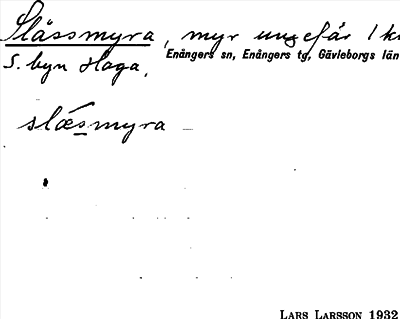 Slåssmyra, myr ungefär 1 k
S. byn Haga.
Enångers sn, Enångers tg, Gävleborgs län
slæsmyra
LARS LARSSON 1932